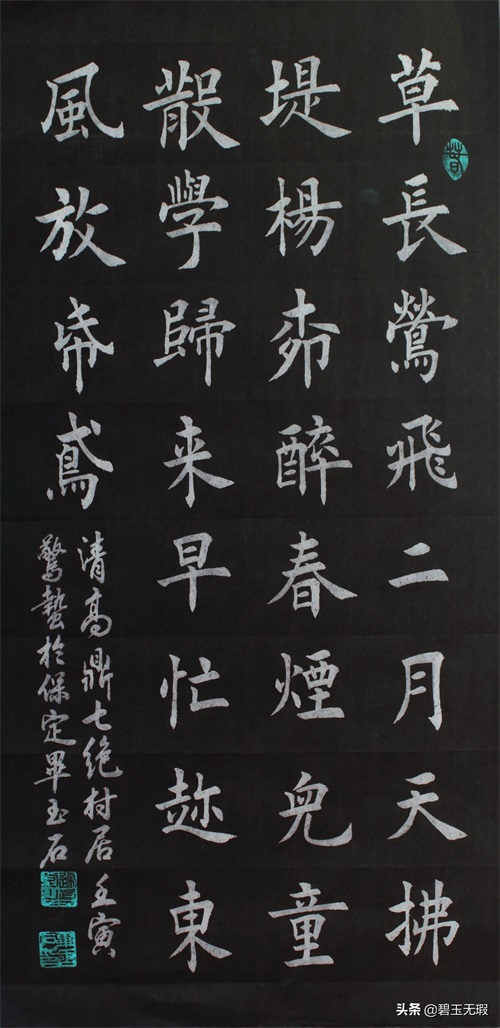 草長鶯飛二月天拂
堤楊柳醉春煙兒童
散學歸来早忙趂東
風放帋鳶
清高鼎七絶村居 壬寅
驚蟄於保定畢玉石
头条 @碧玉无瑕